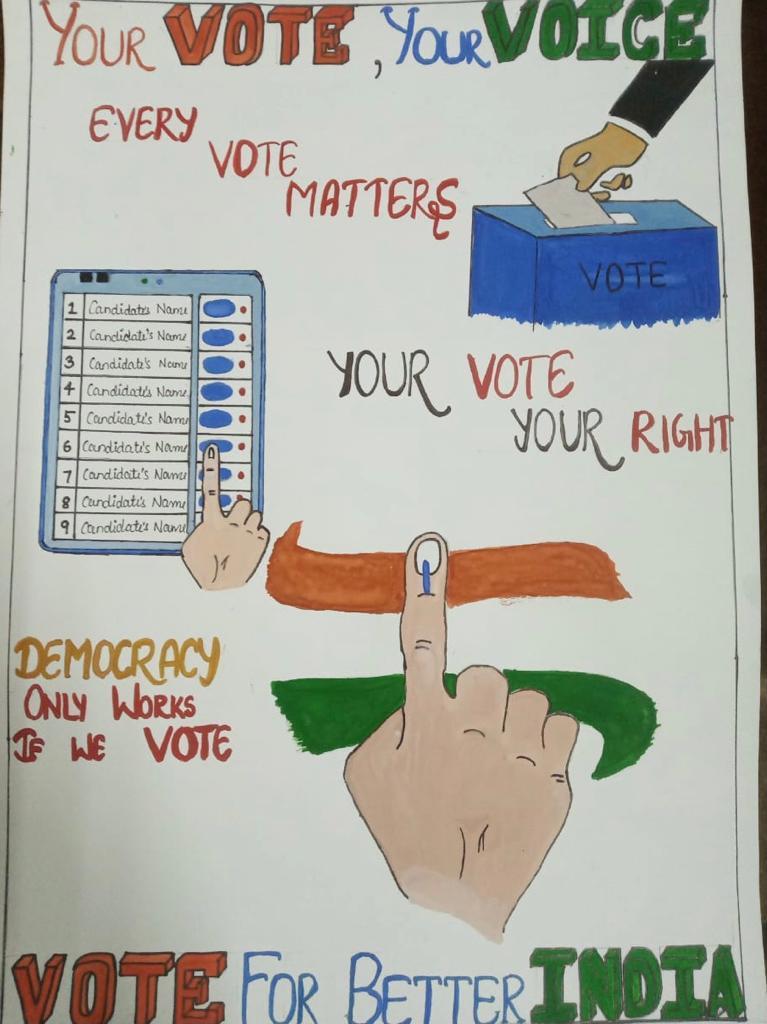 YOUR VOTE, YOUR VOICE
EVERY
VOTE
MATTERS
VOTE
1 Candidate's Name
2 Candidate's Name
3 Candidate's Name
4 Candidate's Name
5 Candidate's Name
6 Candidate's Name
7 Candidate's Name
8 Candidate's Name
9 Candidate's Name
YOUR VOTE
YOUR RIGHT
DEMOCRACY
ONLY WORKS
IF WE VOTE
VOTE FOR BETTER INDIA